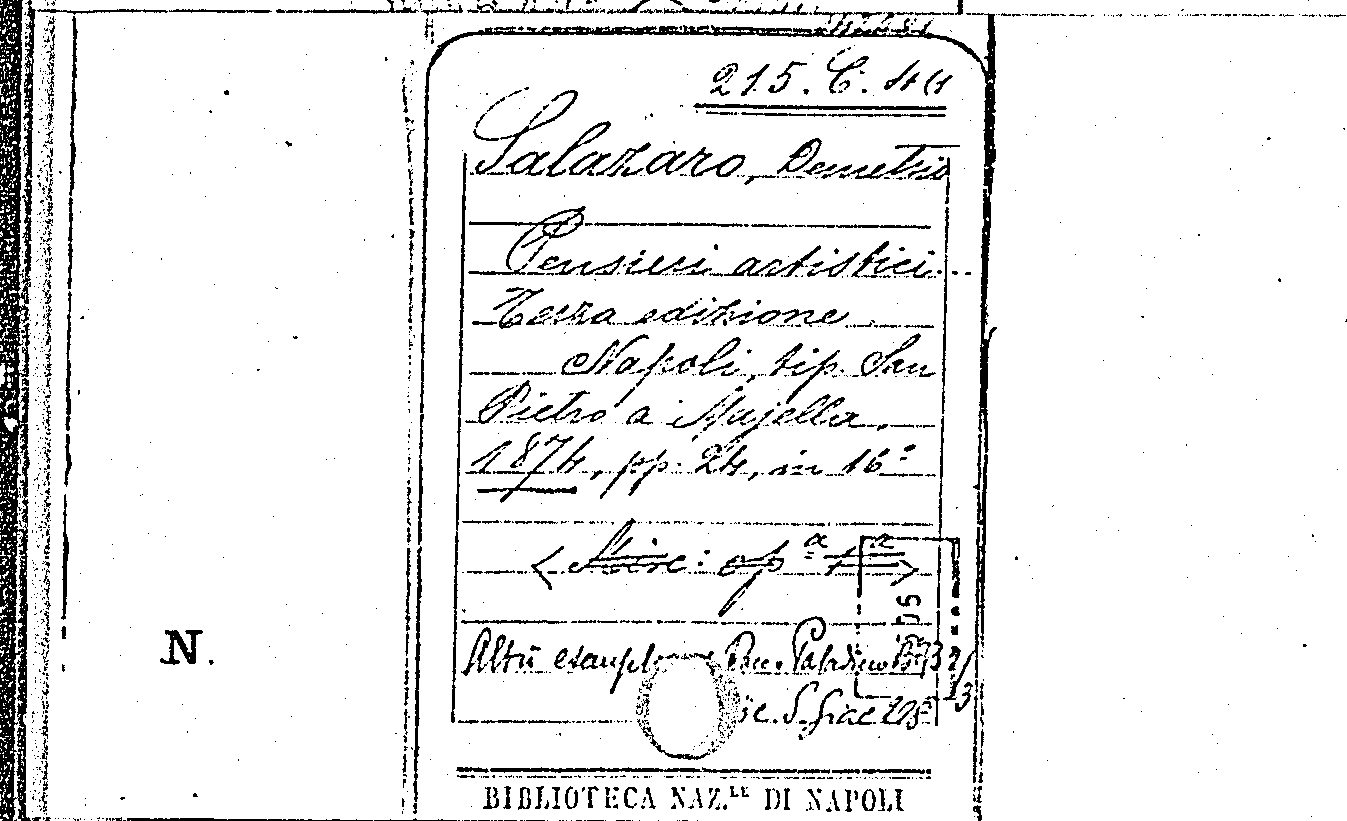 215. C. 44
Salazaro, Demetrio
Pensieri artistici...
Terza edizione
Napoli, tip. San
Pietro a Majella,
1874, pp. 24, in 16°
< Misc: op.ª 1ª >
Altri
S. Giac
N.
BIBLIOTECA NAZ.LE DI NAPOLI